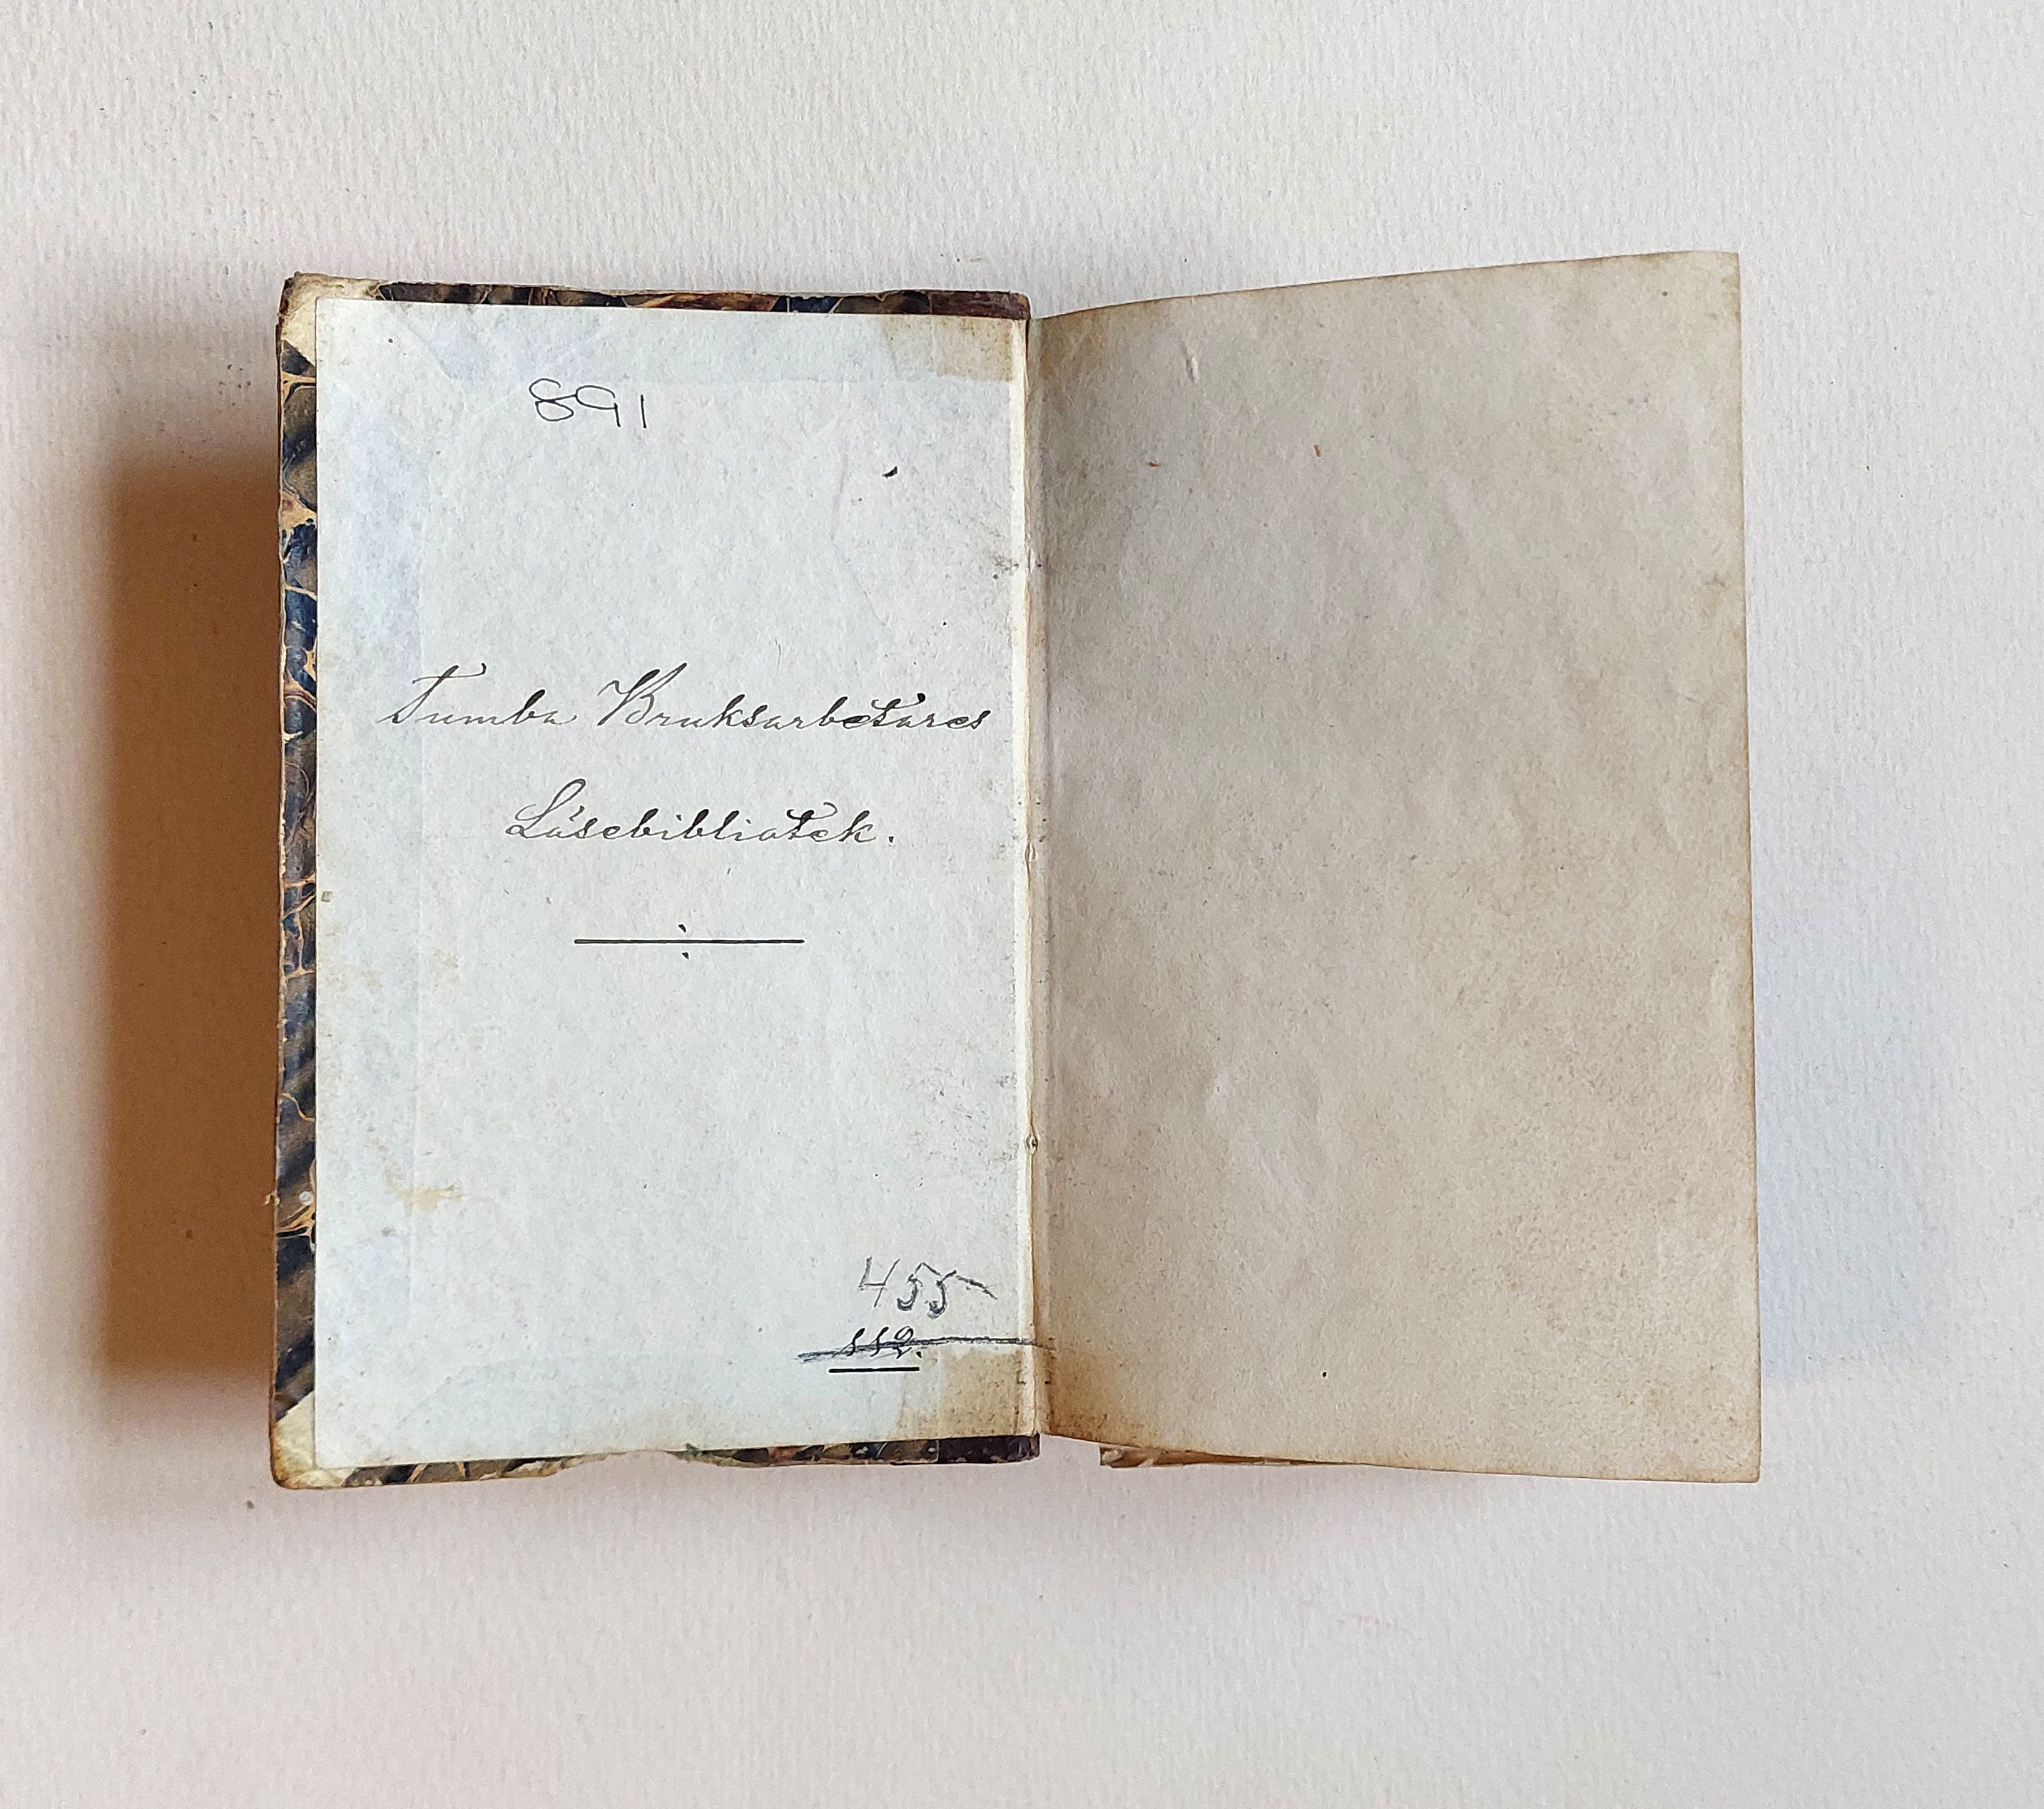 891
Tumba Bruksarbetares
Läsebibliotek.
455
112.